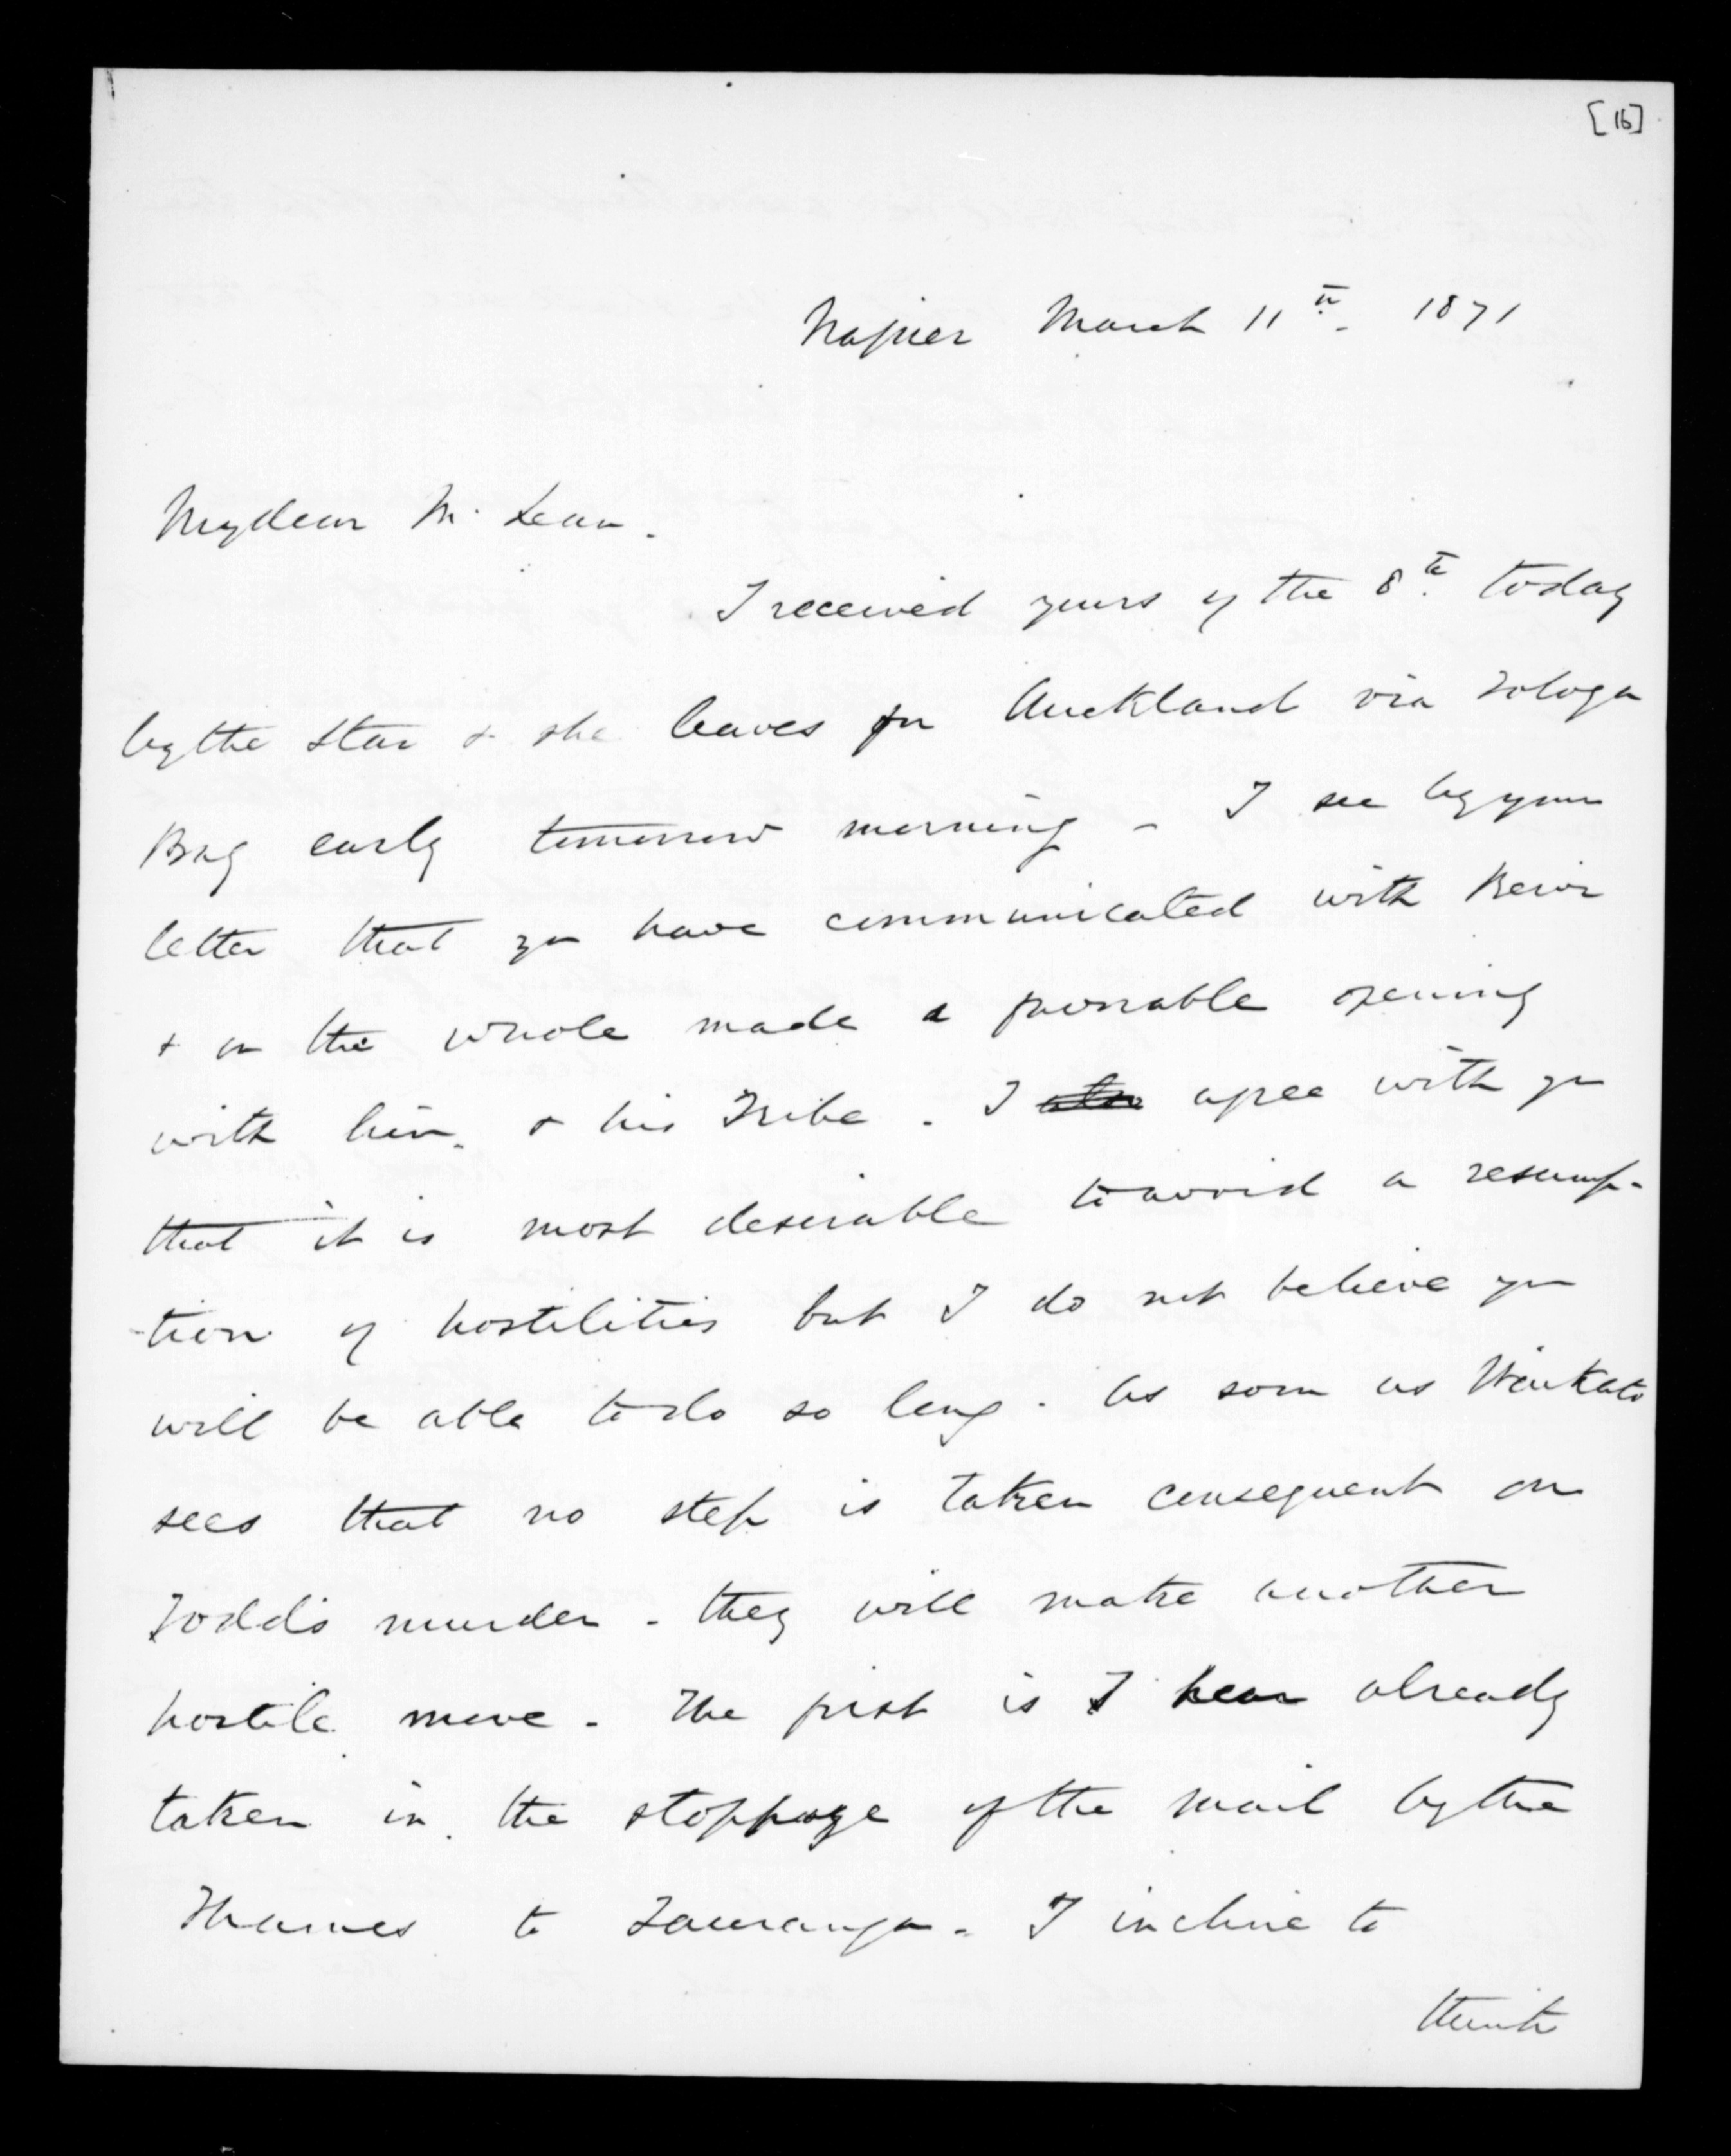 [16]
Napier March 11th. 1871
My dear McLean.
I received yours of the 8th. today
by the Star & she leaves for Auckland via Tologa
Bay early tomorrow morning - I see by your
letter that you have communicated with Rewi
& on the whole made a favorable opening
with him. & his Tribe. I also agree with you
that it is most desirable to avoid a resump-
-tion of hostilities but I do not believe you
will be able to do so long. As soon as Waikato
sees that no step is taken consequent on
Todd's murder - they will make another
hostile move - The first is I hear already
taken in the stoppage of the mail by the
Thames to Tauranga - I incline to
think